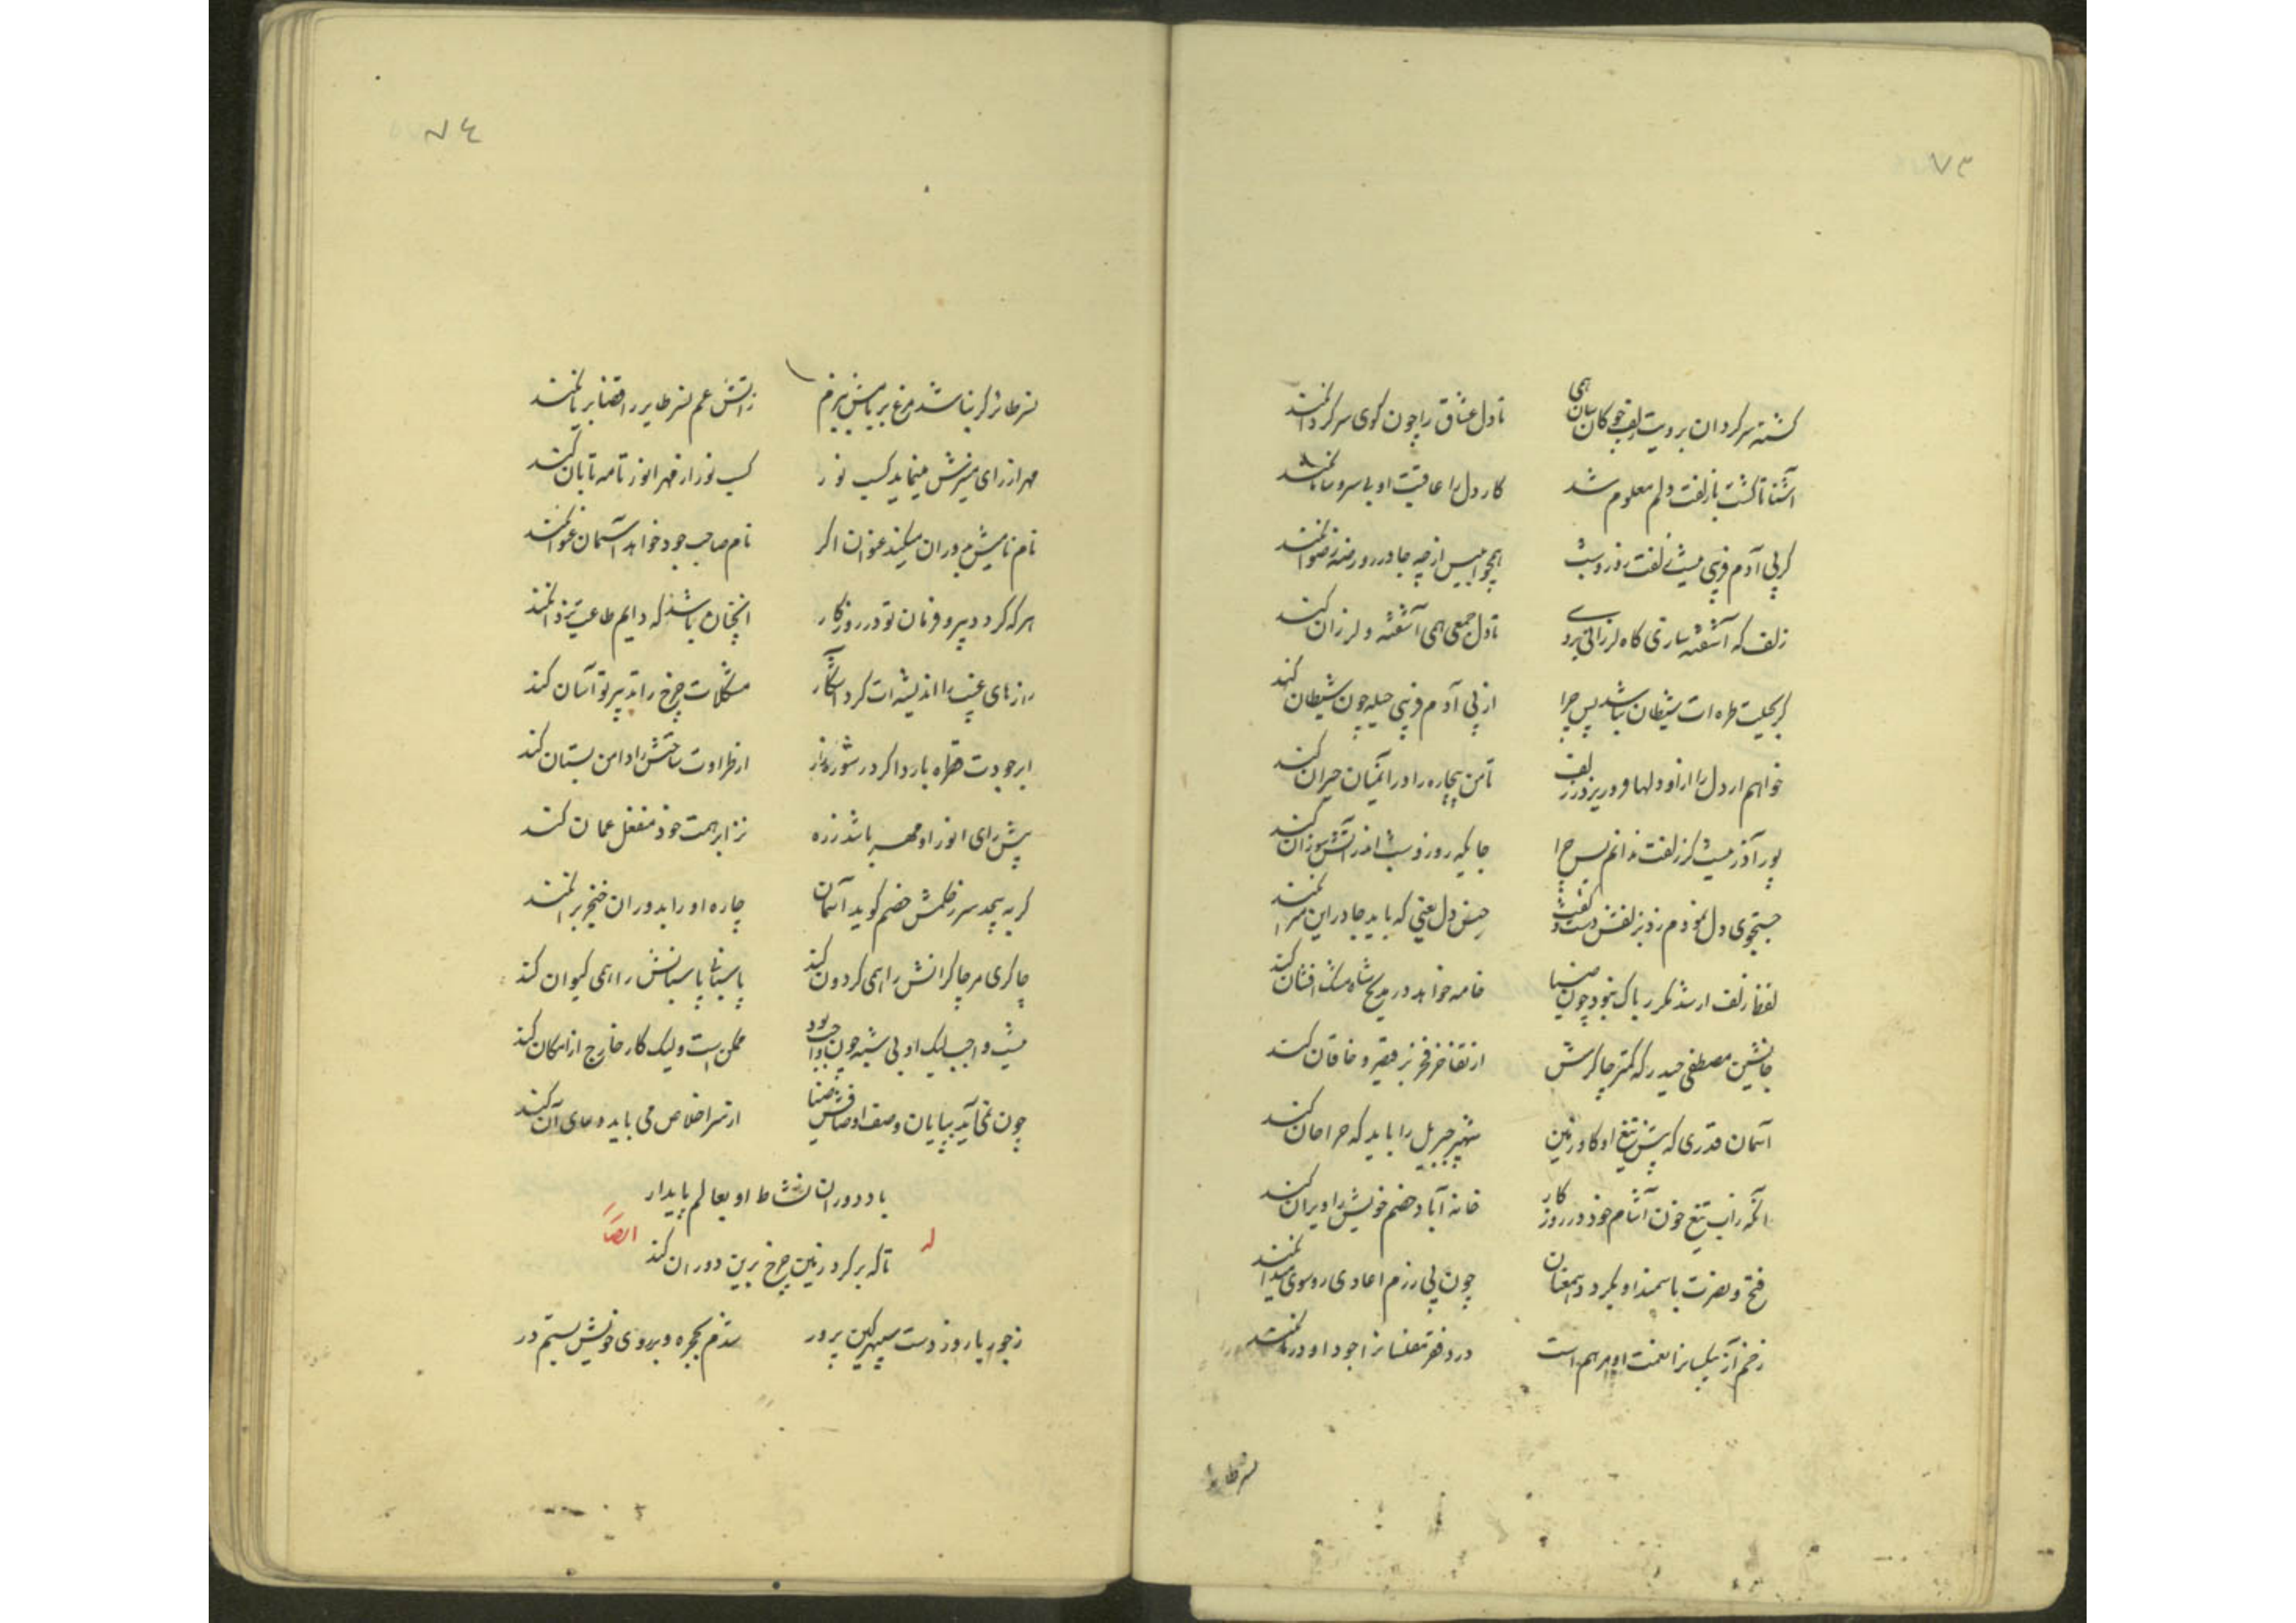 ۷۳
کشته سرکردان برویت زلف چوکان سان همی تا دل عشاق را چون کوی سرکردان کند
آشنا تا کشت با زلفت دلم معلوم شد کار دل را عاقبت او بی سروسامان کند
کر پی آدم فریبی نیست زلفت روز و شب همچو ابلیس از چه جا در روضه رضوان کند
زلف که آشفته سازی کاه لرزانی برو تا دل جمعی همی آشفته و لرزان کند
کر بحیلت طره ات شیطان نباشد پس چرا از پی آدم فریبی حیله چون شیطان کند
خواهم ار دل را از او دلها فرو ریزد ز زلف تا من بیچاره را در آن میان حیران کند
پور آذر نیست کر زلفت ندانم پس چرا جایکه روز و شب اندر آتش سوزان کند
جستجوی دل نمودم دوش ز زلفش گفت حبس دل یعنی که باید جا در این
لفظ زلف ار شد مکرر باک نبود چون ضیا خامه خواهد در مدیح شاه مشک افشان کند
جانشین مصطفی حیدر که کمتر چاکرش از تفاخر فخر بر قیصر و خاقان کند
آسمان قدری که پیش تیغ او کاو زمین شهپر جبریل را باید که حرز جان کند
آنکه زآب تیغ خون آشام خود در روزکار خانه آباد خصم خویش را ویران کند
فتح و نصرت با سمند او بکردد همعنان چون پی رزم اعادی روسوی میدان کند
زخم آز بیکسانرا نعمت او مرهم است درد فقر مفلسانرا جود او درمان کند
نسر طایر
۷۴
نسر طائر کر نباشد مرغ بریانش ببزم زآتش غم نسر طایر را قضا بریان کند
مهر از رای منیرش مینماید کسب نور کسب نور از مهر انور تا مه تابان کند
نام نامیش بدوران میکند عنوان اکر نام صاحب جود خواهد آسمان عنوان کند
هر که کردد پیرو فرمان تو در روزکار آنچنان باشد که دایم طاعت یزدان کند
رازهای غیب را اندیشه ات کرد آشکار مشکلات چرخ را تدبیر تو آسان کند
ابر جودت قطره بارد اکر در شوره زار از طراوت ساحتش را دامن بستان کند
پیش رای انور او مهر باشد ذره نز ابر همت خود منفعل عمان کند
کر به پیچد سر ز حکمش خصم کوید آسمان چاره او را بدوران خنجر بران کند
چاکری مر چاکرانش را همی کردون کند پاسبانی پاسبانش را همی کیوان کند
نیست واجب لیک او بی شبه چون واجب بود ممکن است ولیک کار خارج از امکان کند
چون نمی آید بپایان وصف اوصافش ضیا از سر اخلاص می باید دعای آن کند
باد دوران نشاط او بعالم پایدار
تا که بر کرد زمین چرخ برین دوران کند
له ایضاً
ز جور یار و ز دست سپهر کین پرور شدم بحجره و بر روی خویش بستم در